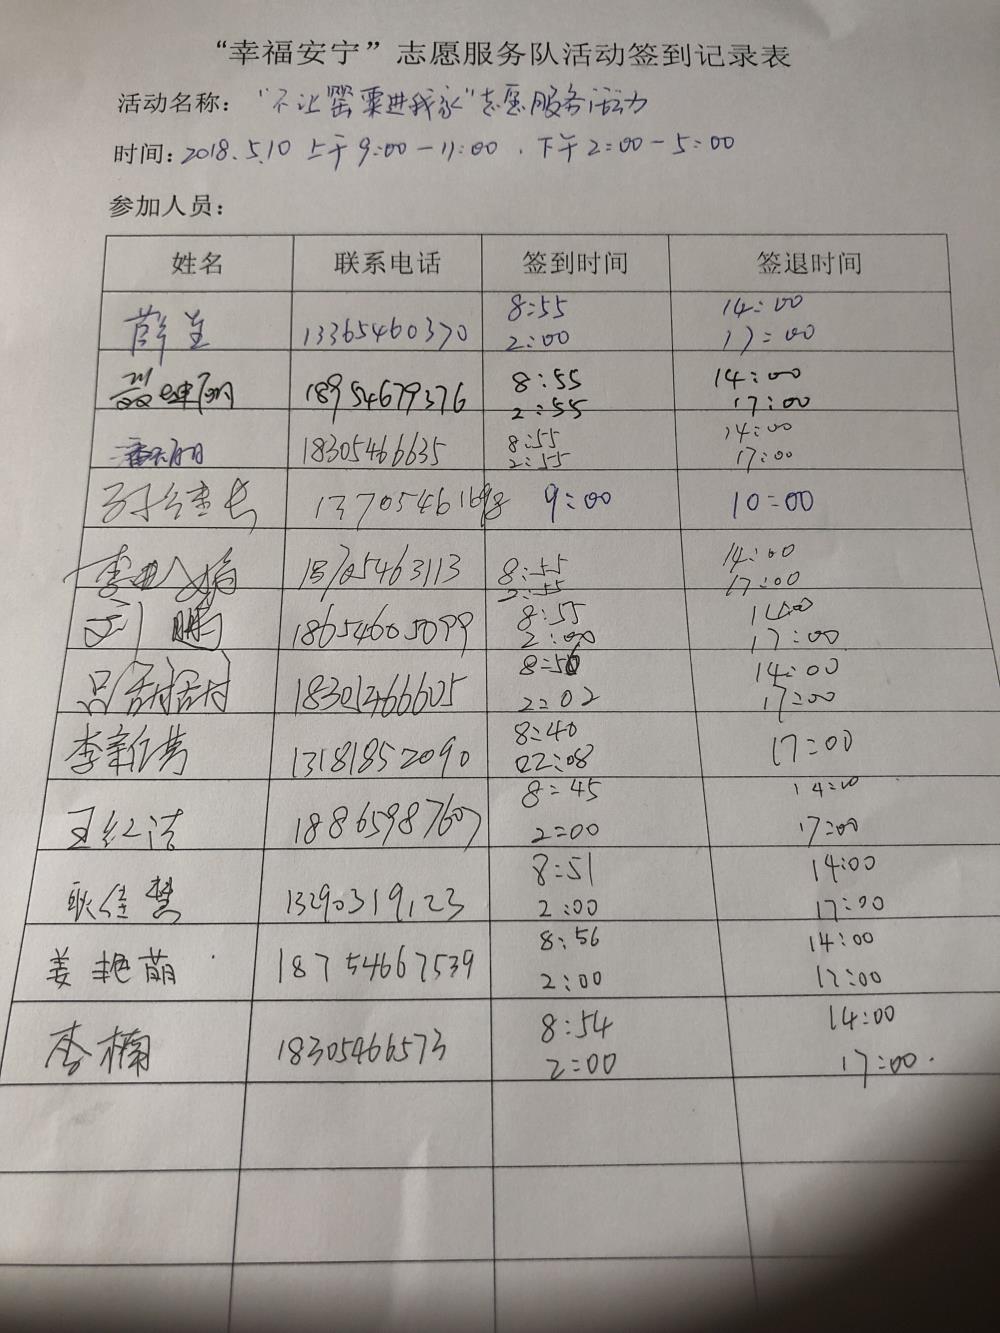 “幸福安宁”志愿服务队活动签到记录表
活动名称：“不让罂粟进我家”志愿服务活动
时间：2018.5.10 上午9:00-11:00，下午2:00-5:00
参加人员：
姓名 联系电话 签到时间 签退时间
薛 13365460370 8:55 14:00
2:00 17:00
聂 18954679376 8:55 14:00
2:55 17:00
潘 18305466635 8:55 14:00
2:55 17:00
孙 长 1370546 9:00 10:00
李 娟 463113 8:55 14:00
2:55 17:00
刘鹏 18654605099 8:55 14:00
2:00 17:00
吕甜甜 466605 8:56 14:00
2:02 17:00
李新芳 13181852090 8:40 17:00
02:08
王红洁 18865987607 8:45 14:00
2:00 17:00
耿佳慧 13290319123 8:51 14:00
2:00 17:00
姜艳萌 18754667539 8:56 14:00
2:00 17:00
李楠 18305466573 8:54 14:00
2:00 17:00.